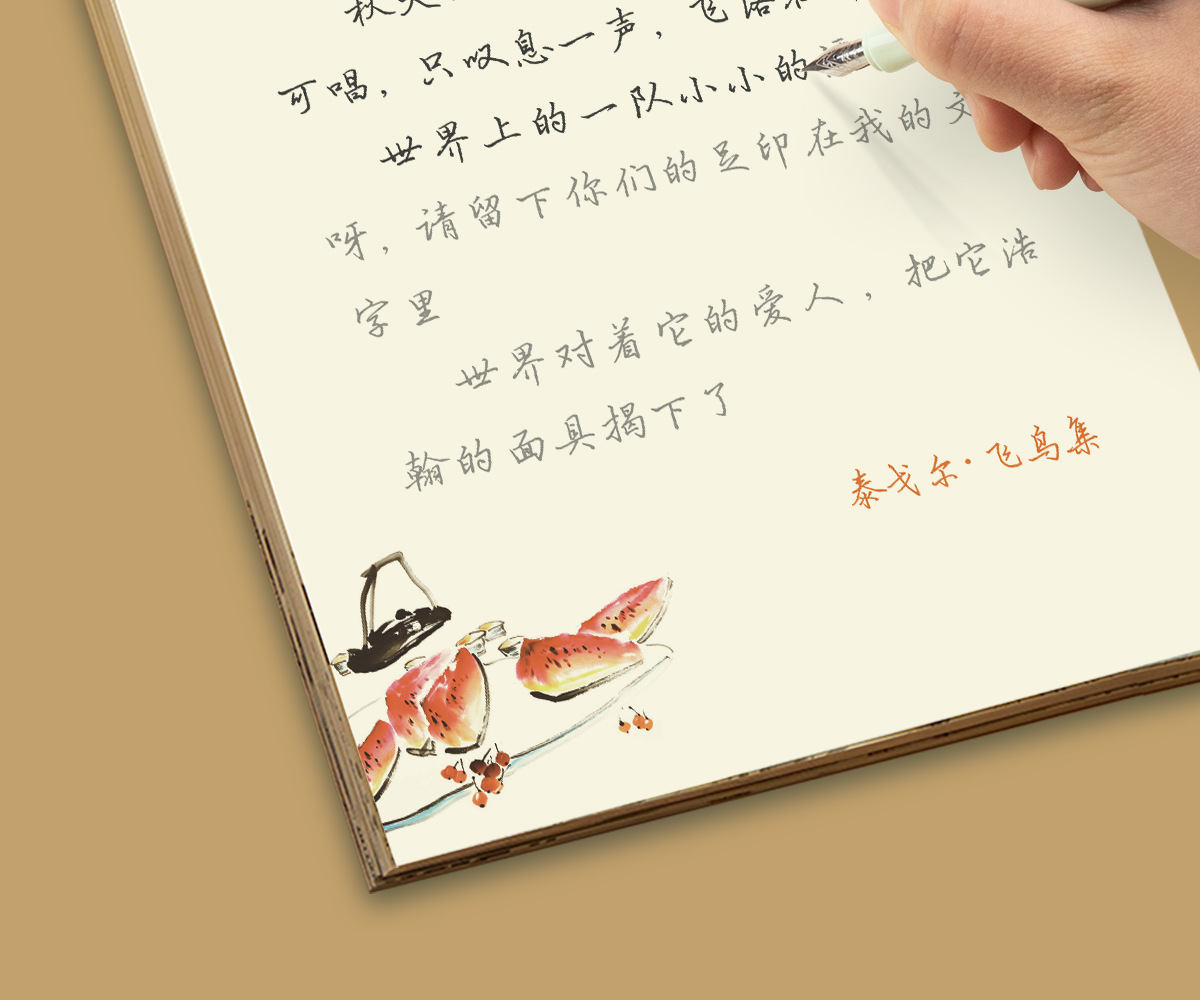 可唱，只叹息一声，飞落
世界上的一队小小的
呀，请留下你们的足印在我的文
字里
世界对着它的爱人，把它浩
翰的面具揭下了
泰戈尔·飞鸟集